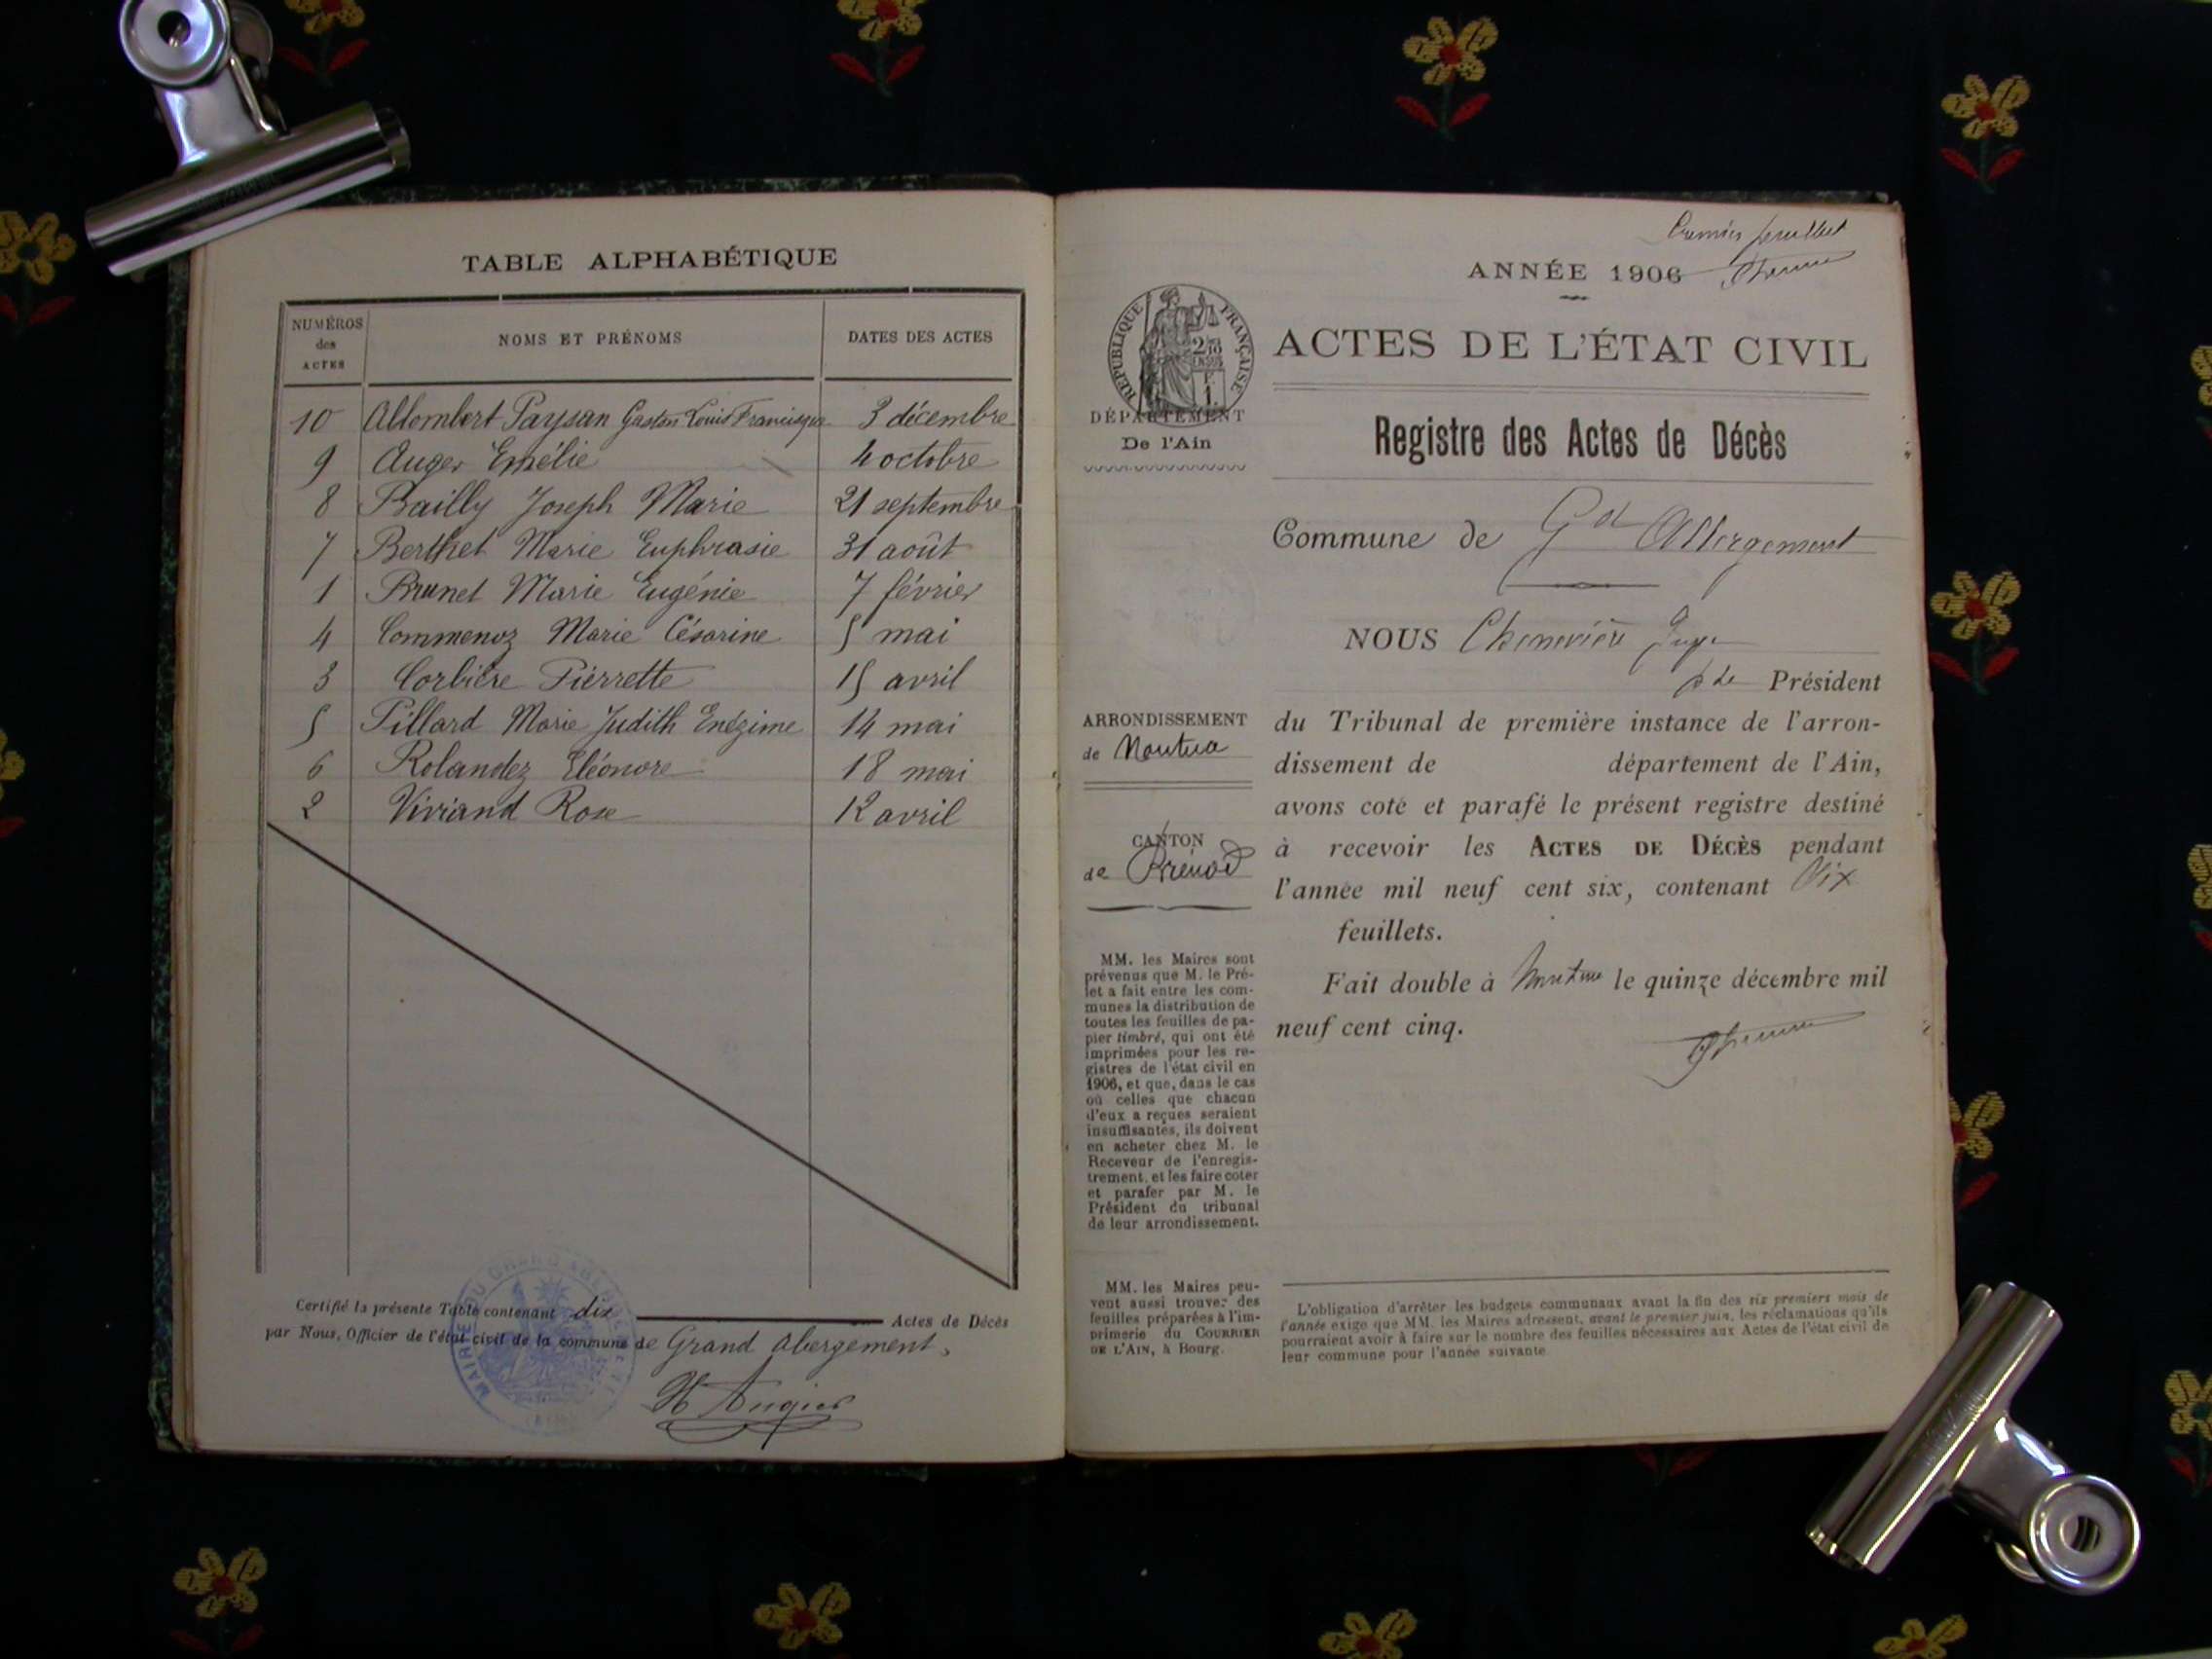 TABLE ALPHABÉTIQUE
NUMÉROS des ACTES
NOMS ET PRÉNOMS
DATES DES ACTES
10 Allombert Paysan Gaston Louis Francisque 3 décembre
9 Auger Emélie 4 octobre
8 Bailly Joseph Marie 21 septembre
7 Berthet Marie Euphrasie 31 août
1 Brunet Marie Eugénie 7 février
4 Commenoz Marie Césarine 5 mai
3 Corbière Pierrette 15 avril
5 Pillard Marie Judith Enézime 14 mai
6 Rolandez Eléonore 18 mai
2 Viviand Rose 12 avril
Certifié la présente Table contenant dix Actes de Décès
par Nous, Officier de l'état civil de la commune de Grand Abergement,
H Augier
MAIRIE DU GRAND ABERGEMENT
Premier feuillet
ANNÉE 1906
RÉPUBLIQUE FRANÇAISE
ACTES DE L'ÉTAT CIVIL
DÉPARTEMENT
De l'Ain
Registre des Actes de Décès
Commune de Gd Abergement
NOUS Chenevière Juge
p le Président
ARRONDISSEMENT
de Nantua
du Tribunal de première instance de l'arron-
dissement de département de l'Ain,
avons coté et parafé le présent registre destiné
à recevoir les ACTES DE DÉCÈS pendant
l'année mil neuf cent six, contenant
feuillets.
Fait double à Nantua le quinze décembre mil
neuf cent cinq.
CANTON
de Brénod
MM. les Maires sont
prévenus que M. le Pré-
fet a fait entre les com-
munes la distribution de
toutes les feuilles de pa-
pier timbré, qui ont été
imprimées pour les re-
gistres de l'état civil en
1906, et que, dans le cas
où celles que chacun
d'eux a reçues seraient
insuffisantes, ils doivent
en acheter chez M. le
Receveur de l'enregis-
trement, et les faire coter
et parafer par M. le
Président du tribunal
de leur arrondissement.
MM. les Maires peu-
vent aussi trouver des
feuilles préparées à l'im-
primerie du COURRIER
DE L'AIN, à Bourg.
L'obligation d'arrêter les budgets communaux avant la fin des six premiers mois de
l'année exige que MM. les Maires adressent, avant le premier juin, les réclamations qu'ils
pourraient avoir à faire sur le nombre des feuilles nécessaires aux Actes de l'état civil de
leur commune pour l'année suivante